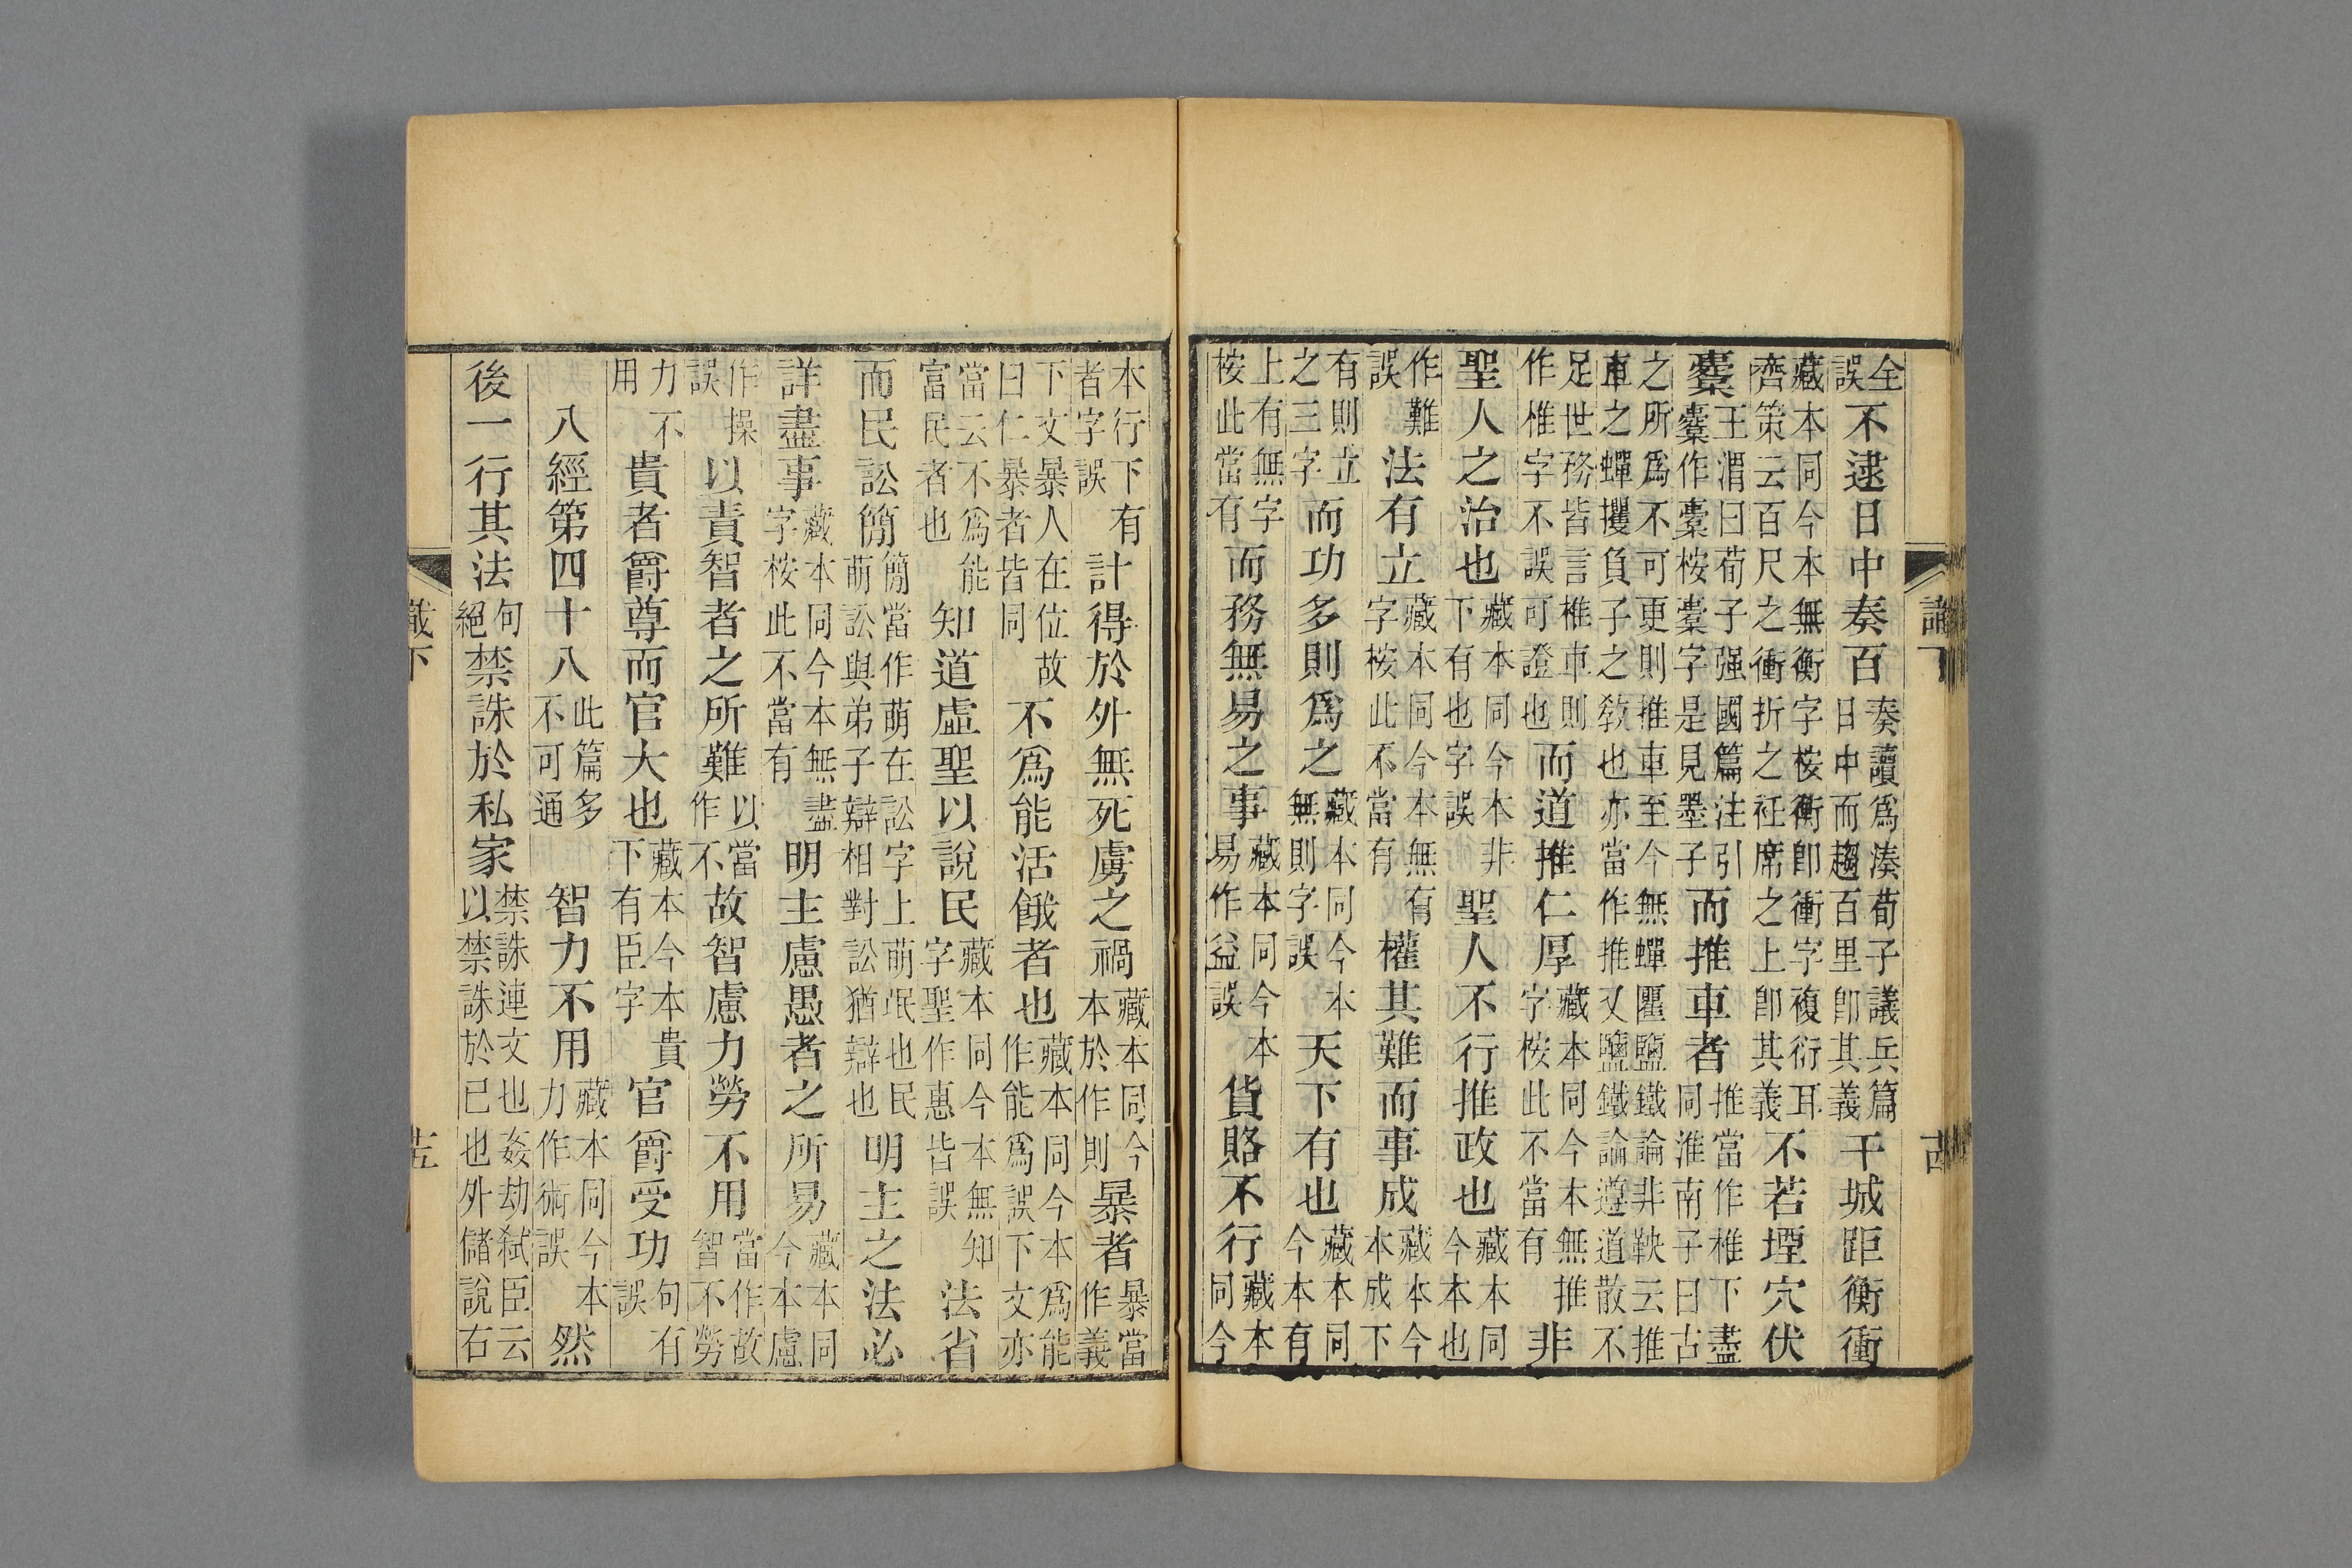 全誤不逮日中奏百奏讀爲湊荀子議兵篇日中而趨百里卽其義干城距衡衝
藏本同今本無衡字桉衡卽衝字複衍耳齊策云百尺之衝折之衽席之上卽其義不若堙穴伏
櫜王渭曰荀子强國篇注引櫜作櫜桉櫜字是見墨子而推車者推當作椎下盡同淮南子曰古
之所爲不可更則推車至今無蟬匷鹽鐵論非鞅云推車之蟬攫負子之敎也亦當作推又鹽鐵論遵道散不
足世務皆言椎車則作椎字不誤可證也而道推仁厚藏本同今本無推字桉此不當有非
聖人之治也藏本同今本非下有也字誤聖人不行推政也藏本同今本也
作難誤法有立藏本同今本無有字桉此不當有權其難而事成藏本今本成下
有則立之三字而功多則爲之藏本同今本無則字誤天下有也藏本同今本有
上有無字桉此當有而務無易之事藏本同今本易作益誤貨賂不行藏本同今
本行下有者字誤計得於外無死虜之禍藏本同今本於作則暴者暴當作義
下文暴人在位故曰仁暴者皆同不爲能活餓者也藏本同今本爲能作能爲誤下文亦
當云不爲能富民者也知道虛聖以說民藏本同今本無知字聖作惠皆誤法省
而民訟簡簡當作萌在訟字上萌氓也民萌訟與弟子辯相對訟猶辯也明主之法必
詳盡事藏本同今本無盡字桉此不當有明主慮愚者之所易藏本同今本慮
作操誤以責智者之所難以當作不故智慮力勞不用當作故智不勞
力不用貴者爵尊而官大也藏本今本貴下有臣字官爵受功句有誤
八經第四十八此篇多不可通智力不用藏本同今本力作術誤然
後一行其法句絕禁誅於私家禁誅連文也姦劫弒臣云以禁誅於已也外儲說右